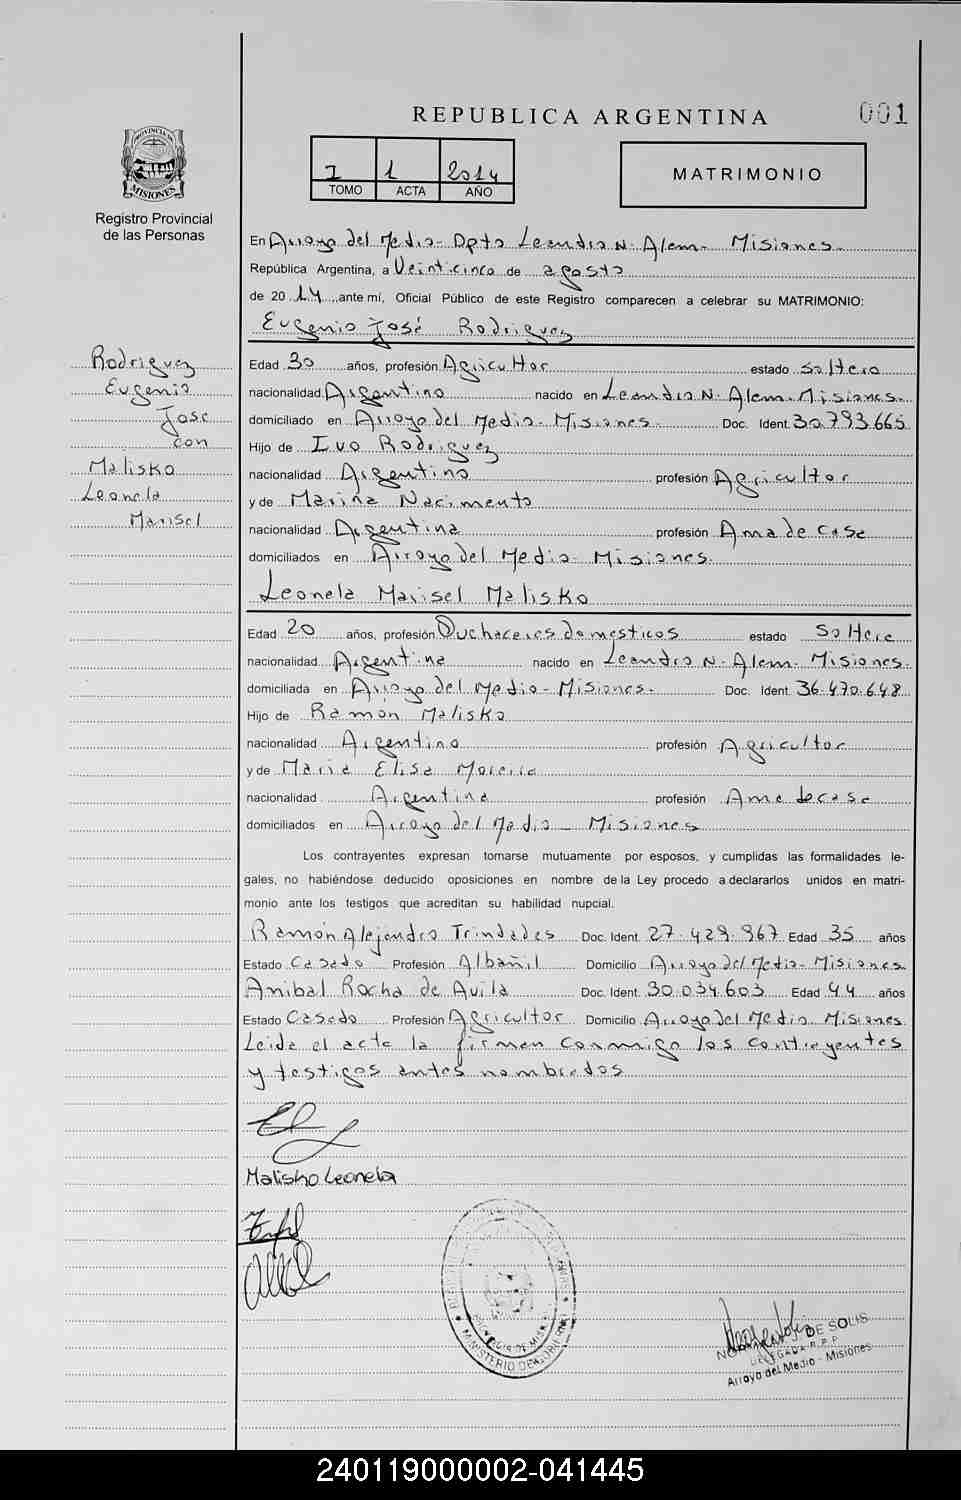 REPUBLICA ARGENTINA
001
I 1 2014
TOMO ACTA AÑO
MATRIMONIO
PROVINCIA DE
MISIONES
Registro Provincial
de las Personas
En Arroyo del Medio - Dpto Leandro N. Alem - Misiones
República Argentina, a Veinticinco de agosto
de 20 14 ante mí, Oficial Público de este Registro comparecen a celebrar su MATRIMONIO:
Eugenio José Rodriguez
Rodriguez
Eugenio
Jose
con
Malisko
Leonela
Marisel
Edad 30 años, profesión Agricultor estado Soltero
nacionalidad Argentino nacido en Leandro N. Alem. Misiones.
domiciliado en Arroyo del Medio - Misiones Doc. Ident. 30.793.665
Hijo de Ivo Rodriguez
nacionalidad Argentino profesión Agricultor
y de Marina Nacimento
nacionalidad Argentina profesión Ama de casa
domiciliados en Arroyo del Medio - Misiones.
Leonela Marisel Malisko
Edad 20 años, profesión Quehaceres domesticos estado Soltera
nacionalidad Argentina nacido en Leandro N. Alem - Misiones.
domiciliada en Arroyo del Medio - Misiones. Doc. Ident. 36.470.648
Hijo de Ramón Malisko
nacionalidad Argentino profesión Agricultor
y de Maria Elisa Moreira
nacionalidad Argentina profesión Ama de casa
domiciliados en Arroyo del Medio - Misiones
Los contrayentes expresan tomarse mutuamente por esposos, y cumplidas las formalidades le-
gales, no habiéndose deducido oposiciones en nombre de la Ley procedo a declararlos unidos en matri-
monio ante los testigos que acreditan su habilidad nupcial.
Ramón Alejandro Trindades Doc. Ident. 27.429.967 Edad 35 años
Estado Casado Profesión Albañil Domicilio Arroyo del Medio - Misiones
Anibal Rocha de Avila Doc. Ident. 30.034.603 Edad 44 años
Estado Casado Profesión Agricultor Domicilio Arroyo del Medio Misiones
Leida el acta la firman conmigo los contrayentes
y testigos antes nombrados
Malisko Leonela
PROVINCIA DE MISIONES
MINISTERIO DE GOBIERNO
DE SOLIS
DELEGADA R.P.P
Arroyo del Medio - Misiones
240119000002-041445